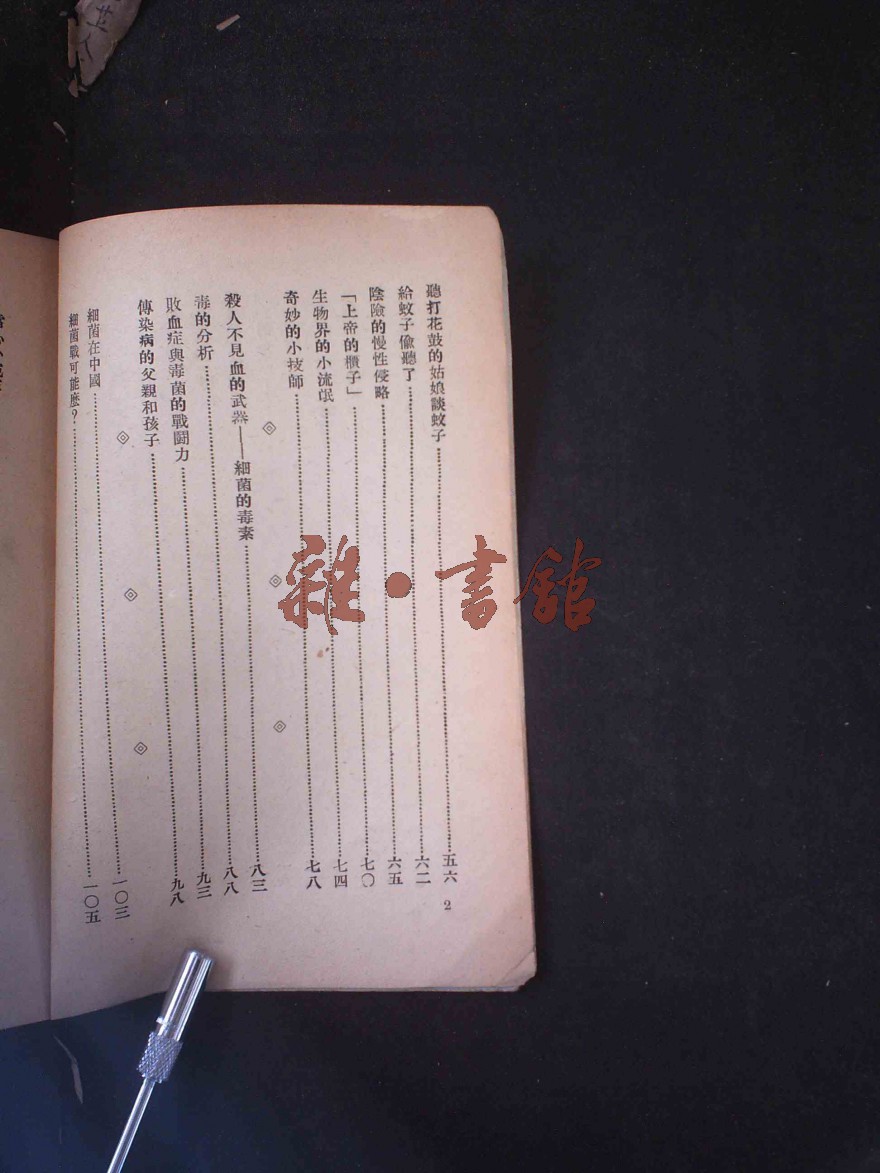 聽打花鼓的姑娘談蚊子……五六
給蚊子偷聽了……六二
陰險的慢性侵略……六五
「上帝的櫃子」……七〇
生物界的小流氓……七四
奇妙的小技師……七八
殺人不見血的武器——細菌的毒素……八三
毒的分析……八八
敗血症與毒菌的戰鬪力……九三
傳染病的父親和孩子……九八
細菌在中國……一〇三
細菌戰可能麽?……一〇五
2
雜·書館